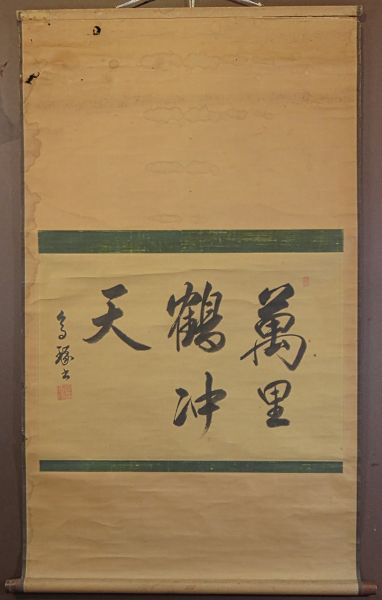 萬里
鶴冲
天